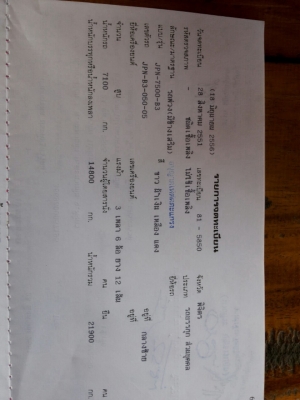 รายการจดทะเบียน
(18 มิถุนายน 2558)
วันจดทะเบียน 28 สิงหาคม 2551 เลขทะเบียน 81 - 5850 จังหวัด พิจิตร
รหัสตรวจสภาพ - ชนิดเชื้อเพลิง ไม่ใช้เชื้อเพลิง ประเภท รถบรรทุก ส่วนบุคคล
ลักษณะ/มาตรฐาน ยี่ห้อรถ
แบบ/รุ่น JPN-7500-B3 สี ขาว น้ำเงิน เหลือง แดง
เลขตัวรถ JPN-B3-050-05 อยู่ที่ กลางซ้าย
ยี่ห้อเครื่องยนต์ เลขเครื่องยนต์ อยู่ที่
จำนวน สูบ แรงม้า 3 เพลา 6 ล้อ ยาง 12 เส้น
น้ำหนักรถ 7100 กก. จำนวนผู้โดยสารนั่ง คน ยืน คน
น้ำหนักบรรทุกหรือน้ำหนักลงเพลา 14800 กก. น้ำหนักรวม 21900 กก.